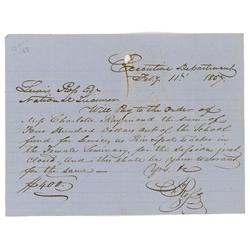 Executive Department
Feby. 11th 1857
Lewis Ross Esqr
National Treasurer
Will Pay to the Order of
Miss Charlotte Raymond the sum of
Four Hundred Dollars out of the School
fund for Services as Principal Teacher
in the Female Seminary, for the Session just
Closed, and this shall be your Warrant
for the same —
$400.